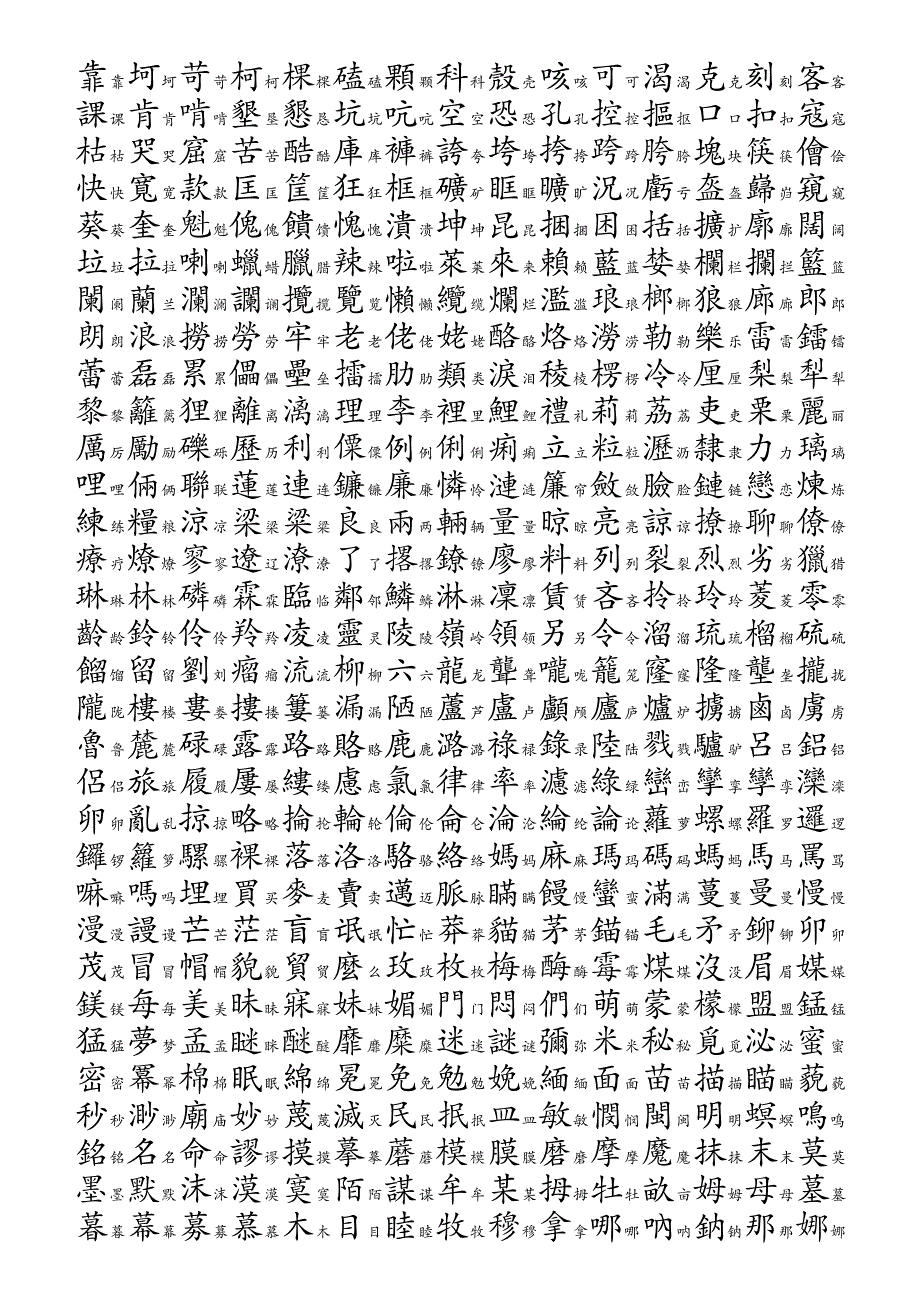 靠靠坷坷苛苛柯柯棵棵磕磕顆颗科科殼壳咳咳可可渴渴克克刻刻客客
課课肯肯啃啃墾垦懇恳坑坑吭吭空空恐恐孔孔控控摳抠口口扣扣寇寇
枯枯哭哭窟窟苦苦酷酷庫库褲裤誇夸垮垮挎挎跨跨胯胯塊块筷筷儈侩
快快寬宽款款匡匡筐筐狂狂框框礦矿眶眶曠旷況况虧亏盔盔巋岿窺窥
葵葵奎奎魁魁傀傀饋馈愧愧潰溃坤坤昆昆捆捆困困括括擴扩廓廓闊阔
垃垃拉拉喇喇蠟蜡臘腊辣辣啦啦萊莱來来賴赖藍蓝婪婪欄栏攔拦籃篮
闌阑蘭兰瀾澜讕谰攬揽覽览懶懒纜缆爛烂濫滥琅琅榔榔狼狼廊廊郎郎
朗朗浪浪撈捞勞劳牢牢老老佬佬姥姥酪酪烙烙澇涝勒勒樂乐雷雷鐳镭
蕾蕾磊磊累累儡儡壘垒擂擂肋肋類类淚泪稜棱楞楞冷冷厘厘梨梨犁犁
黎黎籬篱狸狸離离漓漓理理李李裡里鯉鲤禮礼莉莉荔荔吏吏栗栗麗丽
厲厉勵励礫砾歷历利利傈傈例例俐俐痢痢立立粒粒瀝沥隸隶力力璃璃
哩哩倆俩聯联蓮莲連连鐮镰廉廉憐怜漣涟簾帘斂敛臉脸鏈链戀恋煉炼
練练糧粮涼凉梁梁粱粱良良兩两輛辆量量晾晾亮亮諒谅撩撩聊聊僚僚
療疗燎燎寥寥遼辽潦潦了了撂撂鐐镣廖廖料料列列裂裂烈烈劣劣獵猎
琳琳林林磷磷霖霖臨临鄰邻鱗鳞淋淋凜凛賃赁吝吝拎拎玲玲菱菱零零
齡龄鈴铃伶伶羚羚凌凌靈灵陵陵嶺岭領领另另令令溜溜琉琉榴榴硫硫
餾馏留留劉刘瘤瘤流流柳柳六六龍龙聾聋嚨咙籠笼窿窿隆隆壟垄攏拢
隴陇樓楼婁娄摟搂簍篓漏漏陋陋蘆芦盧卢顱颅廬庐爐炉擄掳鹵卤虜虏
魯鲁麓麓碌碌露露路路賂赂鹿鹿潞潞祿禄錄录陸陆戮戮驢驴呂吕鋁铝
侶侣旅旅履履屢屡縷缕慮虑氯氯律律率率濾滤綠绿巒峦攣挛孿孪灤滦
卵卵亂乱掠掠略略掄抡輪轮倫伦侖仑淪沦綸纶論论蘿萝螺螺羅罗邏逻
鑼锣籮箩騾骡裸裸落落洛洛駱骆絡络媽妈麻麻瑪玛碼码螞蚂馬马罵骂
嘛嘛嗎吗埋埋買买麥麦賣卖邁迈脈脉瞞瞒饅馒蠻蛮滿满蔓蔓曼曼慢慢
漫漫謾谩芒芒茫茫盲盲氓氓忙忙莽莽貓猫茅茅錨锚毛毛矛矛鉚铆卯卯
茂茂冒冒帽帽貌貌貿贸麼么玫玫枚枚梅梅酶酶霉霉煤煤沒没眉眉媒媒
鎂镁每每美美昧昧寐寐妹妹媚媚門门悶闷們们萌萌蒙蒙檬檬盟盟錳锰
猛猛夢梦孟孟瞇眯醚醚靡靡糜糜迷迷謎谜彌弥米米秘秘覓觅泌泌蜜蜜
密密冪幂棉棉眠眠綿绵冕冕免免勉勉娩娩緬缅面面苗苗描描瞄瞄藐藐
秒秒渺渺廟庙妙妙蔑蔑滅灭民民抿抿皿皿敏敏憫悯閩闽明明螟螟鳴鸣
銘铭名名命命謬谬摸摸摹摹蘑蘑模模膜膜磨磨摩摩魔魔抹抹末末莫莫
墨墨默默沫沫漠漠寞寞陌陌謀谋牟牟某某拇拇牡牡畝亩姆姆母母墓墓
暮暮幕幕募募慕慕木木目目睦睦牧牧穆穆拿拿哪哪吶呐鈉钠那那娜娜